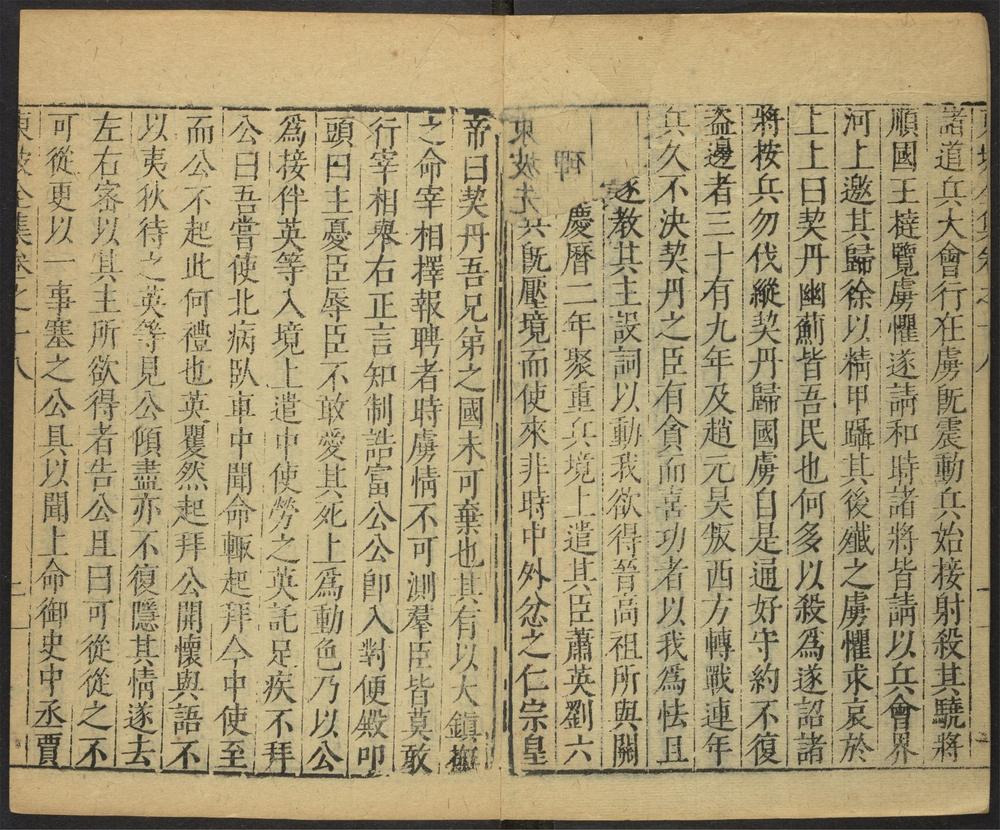 諸道兵大會行在虜旣震動兵始接射殺其驍將
順國王撻覽虜懼遂請和時諸將皆請以兵會界
河上邀其歸徐以精甲躡其後殲之虜懼求哀於
上上曰契丹幽薊皆吾民也何多以殺爲遂詔諸
將按兵勿伐縱契丹歸國虜自是通好守約不復
盗邊者三十有九年及趙元昊叛西方轉戰連年
兵久不決契丹之臣有貪而喜功者以我爲怯且
遂教其主設詞以動我欲得晉高祖所與關
慶曆二年聚重兵境上遣其臣蕭英劉六
碑
東坡先
兵旣壓境而使來非時中外忿之仁宗皇
帝曰契丹吾兄弟之國未可棄也其有以大鎮撫
之命宰相擇報聘者時虜情不可測羣臣皆莫敢
行宰相舉右正言知制誥富公公卽入對便殿叩
頭曰主憂臣辱臣不敢愛其死上爲動色乃以公
爲接伴英等入境上遣中使勞之英託足疾不拜
公曰吾嘗使北病臥車中聞命輙起拜今中使至
而公不起此何禮也英矍然起拜公開懷與語不
以夷狄待之英等見公傾盡亦不復隱其情遂去
左右宻以其主所欲得者告公且曰可從從之不
可從更以一事塞之公具以聞上命御史中丞賈
東坡全集卷之十八